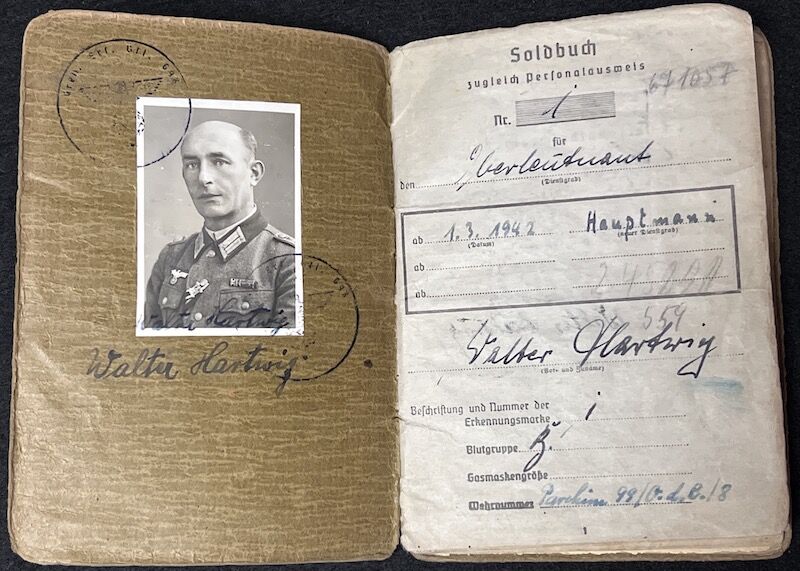 Gren. Ers. Btl.
Walter Hartwig
Walter Hartwig
Soldbuch
zugleich Personalausweis
671057
Nr. 1
für
den Oberleutnant
(Dienstgrad)
ab 1.3. 1942 Hauptmann
(Datum) (neuer Dienstgrad)
ab
ab
554
Walter Hartwig
(Vor- und Zuname)
Beschriftung und Nummer der
Erkennungsmarke 1
Blutgruppe B.
Gasmaskengröße
Wehrnummer Parchim 99/O.d.B./8
1